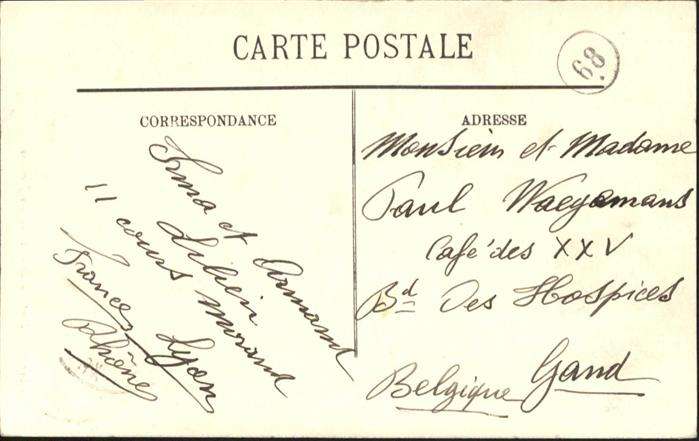 CARTE POSTALE
68
CORRESPONDANCE
Irma et Armand
Lilien
11 cours Morand
Lyon
France
Rhône
ADRESSE
Monsieur et Madame
Paul Waeyamans
Café des XXV
Bd Des Hospices
Gand
Belgique